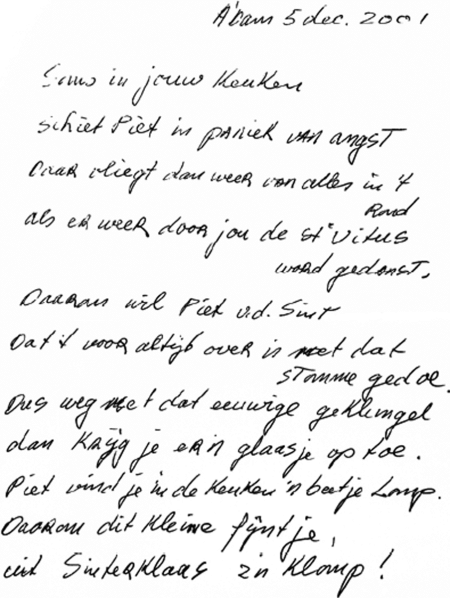 A'dam 5 dec. 2001
Soms in jouw keuken
schiet Piet in paniek van angst
Daar vliegt dan weer van alles in 't
Rond
als er weer door jou de St Vitus
word gedanst,
Daarom wil Piet v.d. Sint
Dat 't voor altijd over is met dat
stomme gedoe.
Dus weg met dat eeuwige geklungel
dan krijg je er 'n glaasje op toe.
Piet vind je in de keuken 'n beetje Lomp.
Daarom dit kleine fijntje,
uit Sinterklaas z'n Klomp!